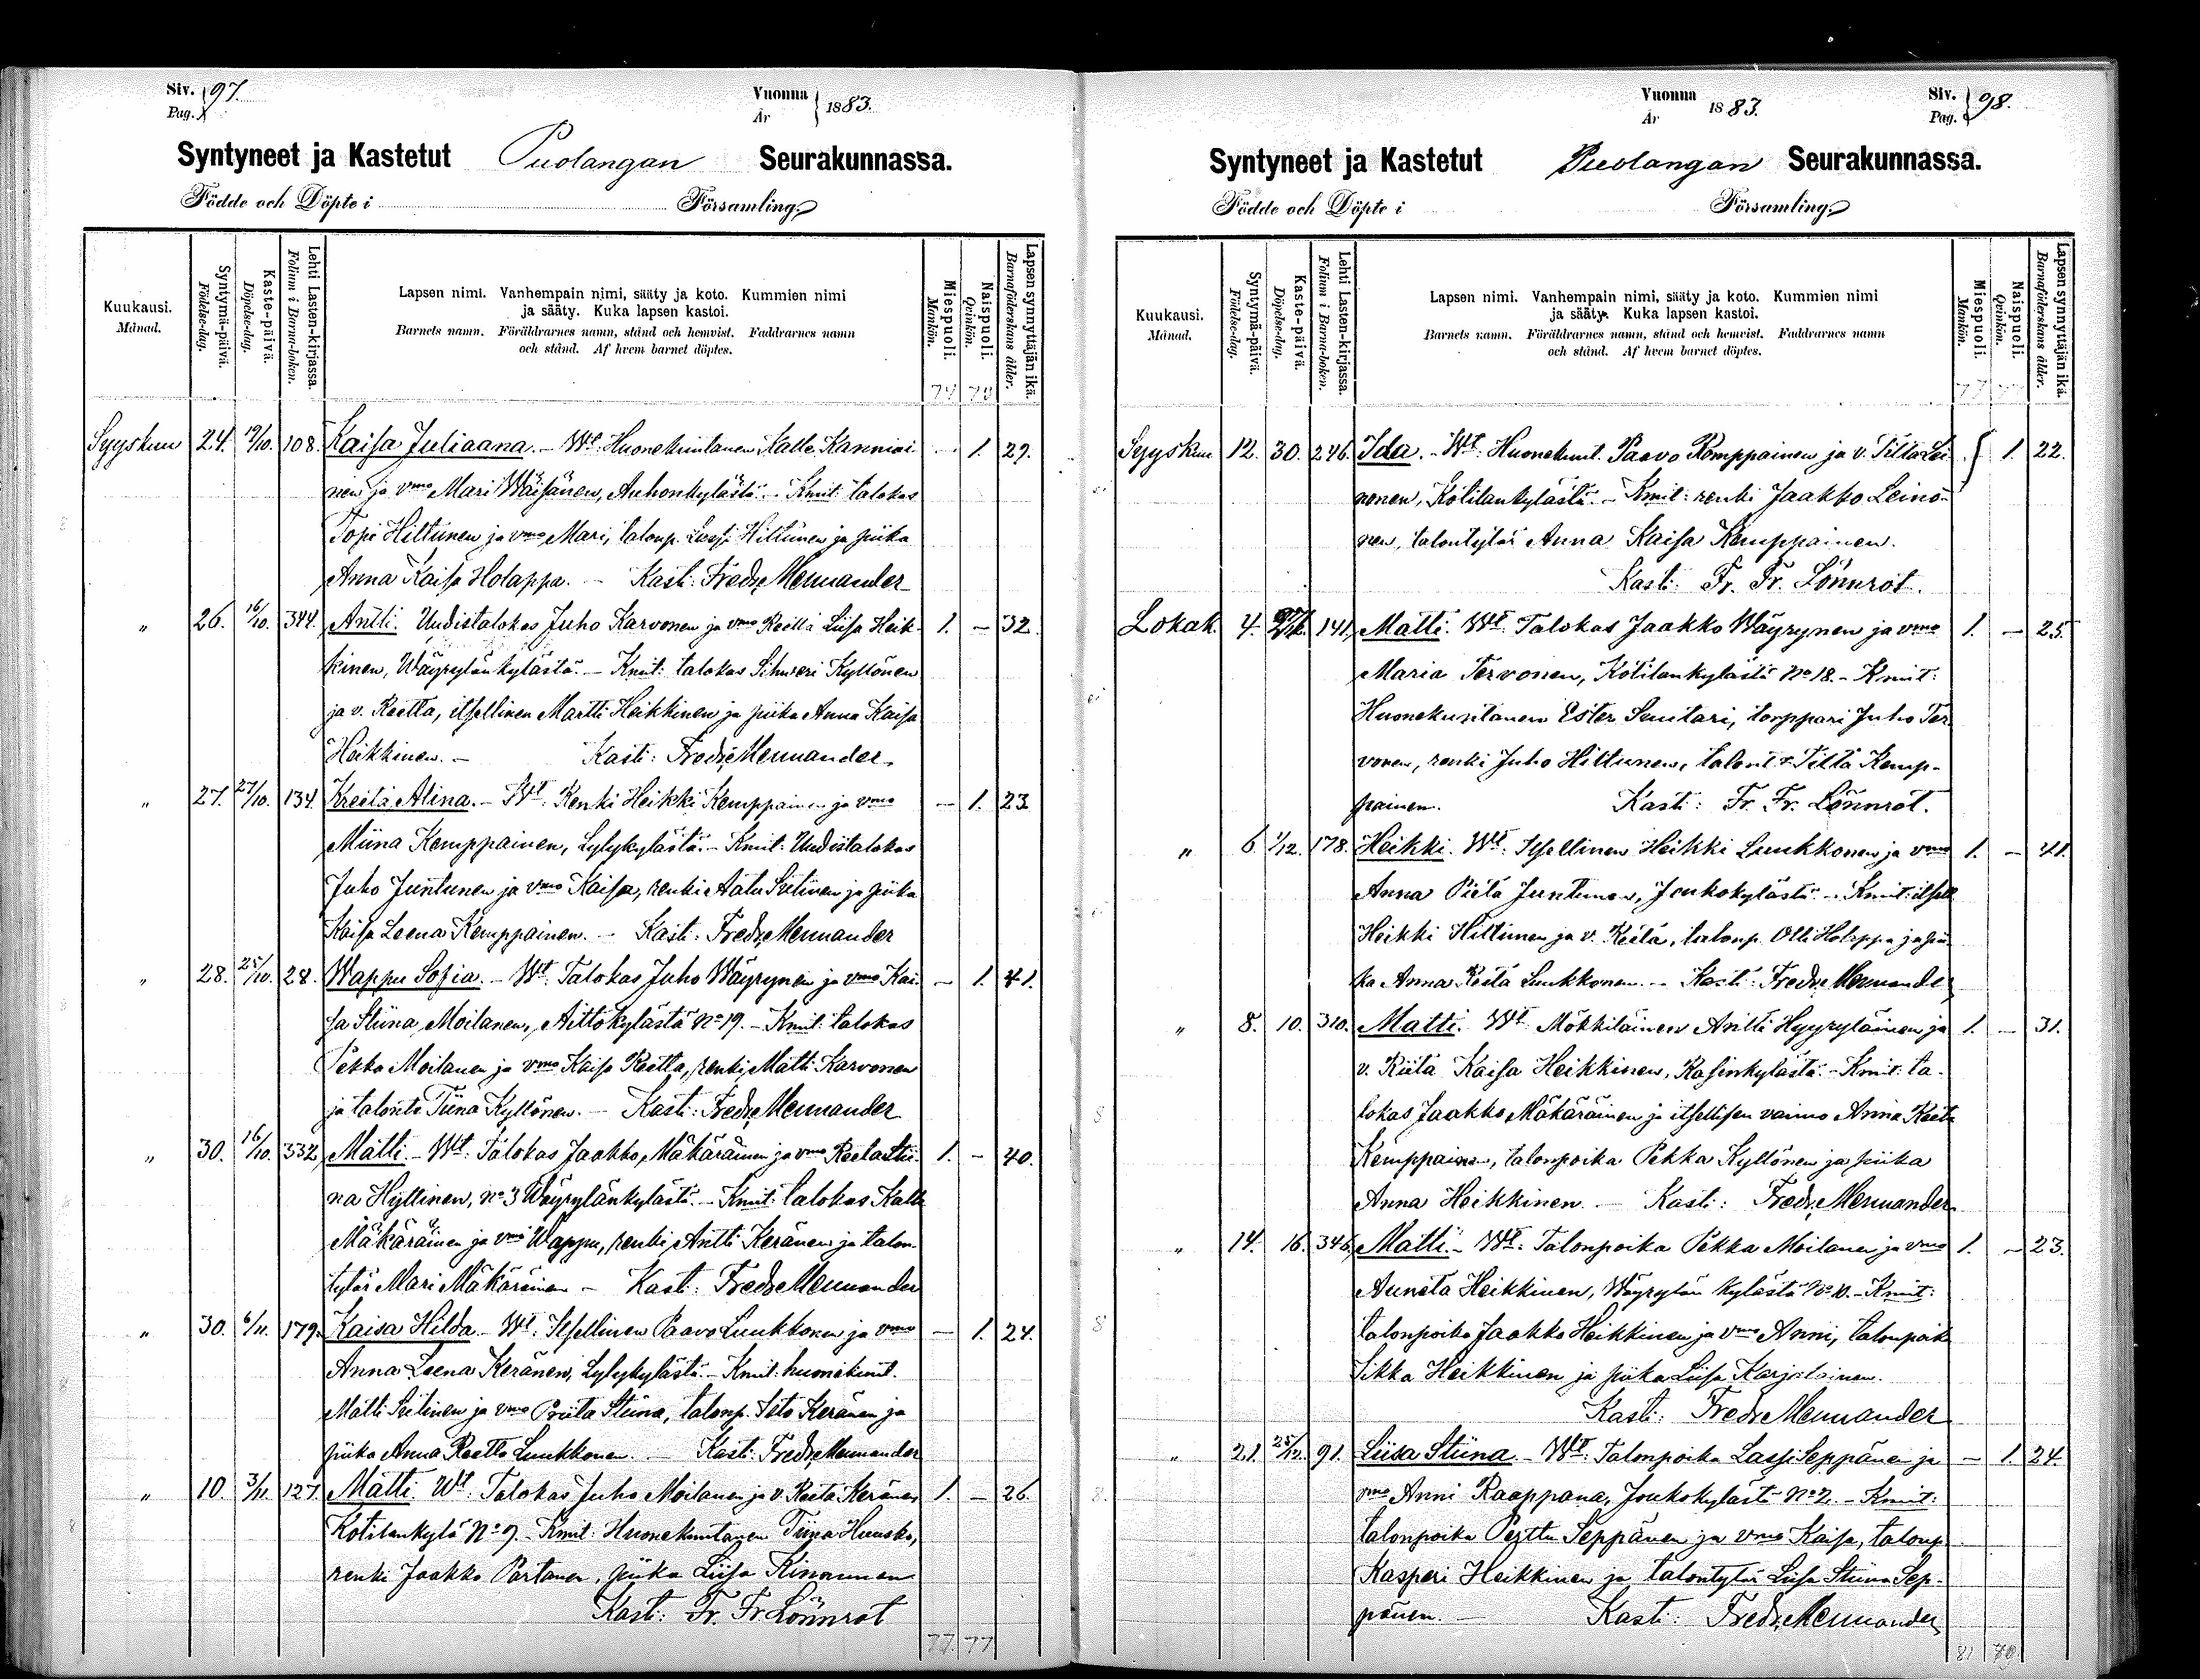 Siv. 97.
Pag.
Vuonna 1883.
År
Syntyneet ja Kastetut Puolangan Seurakunnassa.
Födde och Döpte i Församling.
Kuukausi.
Månad.
Syntymä-päivä.
Födelse-dag.
Kaste-päivä.
Döpelse-dag.
Lehti Lasten-kirjassa.
Folium i Barna-boken.
Lapsen nimi. Vanhempain nimi, sääty ja koto. Kummien nimi
ja sääty. Kuka lapsen kastoi.
Barnets namn. Föräldrarnes namn, stånd och hemvist. Faddrarnes namn
och stånd. Af hvem barnet döptes.
Miespuoli.
Mankön.
Naispuoli.
Qvinkön.
Lapsen synnyttäjän ikä.
Barnaföderskans ålder.
Syyskuu 24. 19/10. 108. Kaisa Juliaana. - Wt. Huonekuntanen Kalle Kanniai- 1. 29.
nen ja vmo Mari Wäisänen, Auhonkylästä. - Kmit: talokas
Topi Hiltunen ja vmo Mari, talonp. Lassi Hiltunen ja piika
Anna Kaisa Holappa. - Kasti: Fredr. Mennander
" 26. 16/10. 344. Antti. Uudistalokas Juho Karvonen ja vmo Reetta Liisa Heik- 1. - 32.
kinen, Wäyrylänkylästä. - Kmit: talokas Sihveri Kyllönen
ja v. Reetta, itsellinen Martti Heikkinen ja piika Anna Kaisa
Heikkinen. - Kasti: Fredr. Mennander.
" 27. 27/10. 134. Kreeta Alina. - Wt. Renki Heikki Kemppainen ja vmo - 1. 23
Miina Kemppainen, Lylykylästä. - Kmit: Uudistalokas
Juho Juntunen ja vmo Kaisa, renki Aatu Seitinen ja piika
Kaisa Leena Kemppainen. - Kasti: Fredr. Mennander
" 28. 25/10. 28. Wappu Sofia. - Wt. Talokas Juho Wäyrynen ja vmo Kai- - 1. 41.
sa Stiina Moilanen, Aittokylästä No 19. - Kmit: talokas
Pekka Moilanen ja vmo Kaisa Reetta, renki Matti Karvonen
ja talont. Tiina Kyllönen. - Kasti: Fredr. Mennander
" 30. 16/10. 332. Matti. - Wt. Talokas Jaakko Mäkäräinen ja vmo Reeta Stii- 1. - 40.
na Hyttinen, no 3 Wäyrylänkylästä. - Kmit: talokas Kalle
Mäkäräinen ja vmo Wappu, renki Antti Keränen ja talon-
tytär Mari Mäkäräinen - Kasti: Fredr. Mennander
" 30. 6/11. 179. Kaisa Hilda. - Wt. Itsellinen Paavo Luukkonen ja vmo - 1. 24.
Anna Leena Keränen, Lylykylästä. - Kmit: huonekunt.
Matti Seitinen ja vmo Priita Stiina, talonp. Keränen ja
piika Anna Reetta Luukkonen. - Kasti: Fredr. Mennander
" 10. 3/11. 127. Matti. Wt. Talokas Juho Moilanen ja v. Reeta Keränen 1. - 26.
Kotilankylä No 9. Kmit: Huonekuntanen Tiina Huusko,
renki Jaakko Partanen, piika Liisa Kinnunen
Kast: Fr. Fr. Lönnrot
77. 77
Vuonna 1883.
År
Siv. 98.
Pag.
Syntyneet ja Kastetut Puolangan Seurakunnassa.
Födde och Döpte i Församling.
Kuukausi.
Månad.
Syntymä-päivä.
Födelse-dag.
Kaste-päivä.
Döpelse-dag.
Lehti Lasten-kirjassa.
Folium i Barna-boken.
Lapsen nimi. Vanhempain nimi, sääty ja koto. Kummien nimi
ja sääty. Kuka lapsen kastoi.
Barnets namn. Föräldrarnes namn, stånd och hemvist. Faddrarnes namn
och stånd. Af hvem barnet döptes.
Miespuoli.
Mankön.
Naispuoli.
Qvinkön.
Lapsen synnyttäjän ikä.
Barnaföderskans ålder.
Syyskuu 12. 30. 246. Ida. - Wt. Huonekunt. Paavo Komppainen ja v. Tilta Lei- 1. 22.
nonen, Kotilankylästä. - Kmit: renki Jaakko Leino-
nen, talontytär Anna Kaisa Kemppainen.
Kasti: Fr. Fr. Lönnrot.
Lokak. 4. 141. Matti. Wt. Talokas Jaakko Wäyrynen ja vmo 1. - 25.
Maria Tervonen, Kotilankylästä No 18. - Kmit:
Huonekuntanen Ester Suutari, torppari Juho Ter-
vonen, renki Juho Hiltunen, talont. Tilta Kemp-
painen. Kasti: Fr. Fr. Lönnrot.
" 6. 1/12. 178. Heikki. Wt. Itsellinen Heikki Luukkonen ja vmo 1. - 41.
Anna Pieta Juntunen, Joukokylästä. - Kmit: itsell.
Heikki Hiltunen ja v. Reeta, talonp. Olli Holappa ja pii-
ka Anna Reeta Luukkonen. - Kasti: Fredr. Mennander
" 8. 10. 310. Matti. Wt. Mökkiläinen Antti Hyyryläinen ja 1. - 31.
v. Riita Kaisa Heikkinen, Kasinkylästä. - Kmit: ta-
lokas Jaakko Mäkäräinen ja itsellisen vaimo Anna Reeta
Kemppainen, talonpoika Pekka Kyllönen ja piika
Anna Heikkinen. - Kasti: Fredr. Mennander
" 14. 16. 346. Matti. - Wt. Talonpoika Pekka Moilanen ja vmo 1. - 23.
Auneta Heikkinen, Wäyrylän kylästä No 10. - Kmit:
talonpoika Jaakko Heikkinen ja vmo Anni, talonpoik
Sikka Heikkinen ja piika Liisa Karjalainen.
Kasti: Fredr. Mennander
" 21. 25/12. 91. Liisa Stiina. - Wt. Talonpoika Lassi Seppänen ja - 1. 24.
vmo Anni Raappana, Joukokyläst No 2. - Kmit:
talonpoika Perttu Seppänen ja vmo Kaisa, talonp
Kasperi Heikkinen ja talontytär Liisa Stiina Sep-
pänen. - Kasti: Fredr. Mennander
81